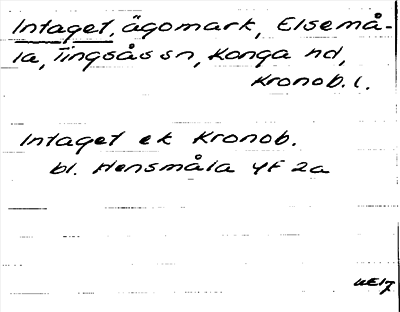 Intaget, ägomark, Elsemå-
la, Tingsås sn, Konga hd,
Kronob. l.
Intaget ek Kronob.
bl. Hensmåla 4F 2a